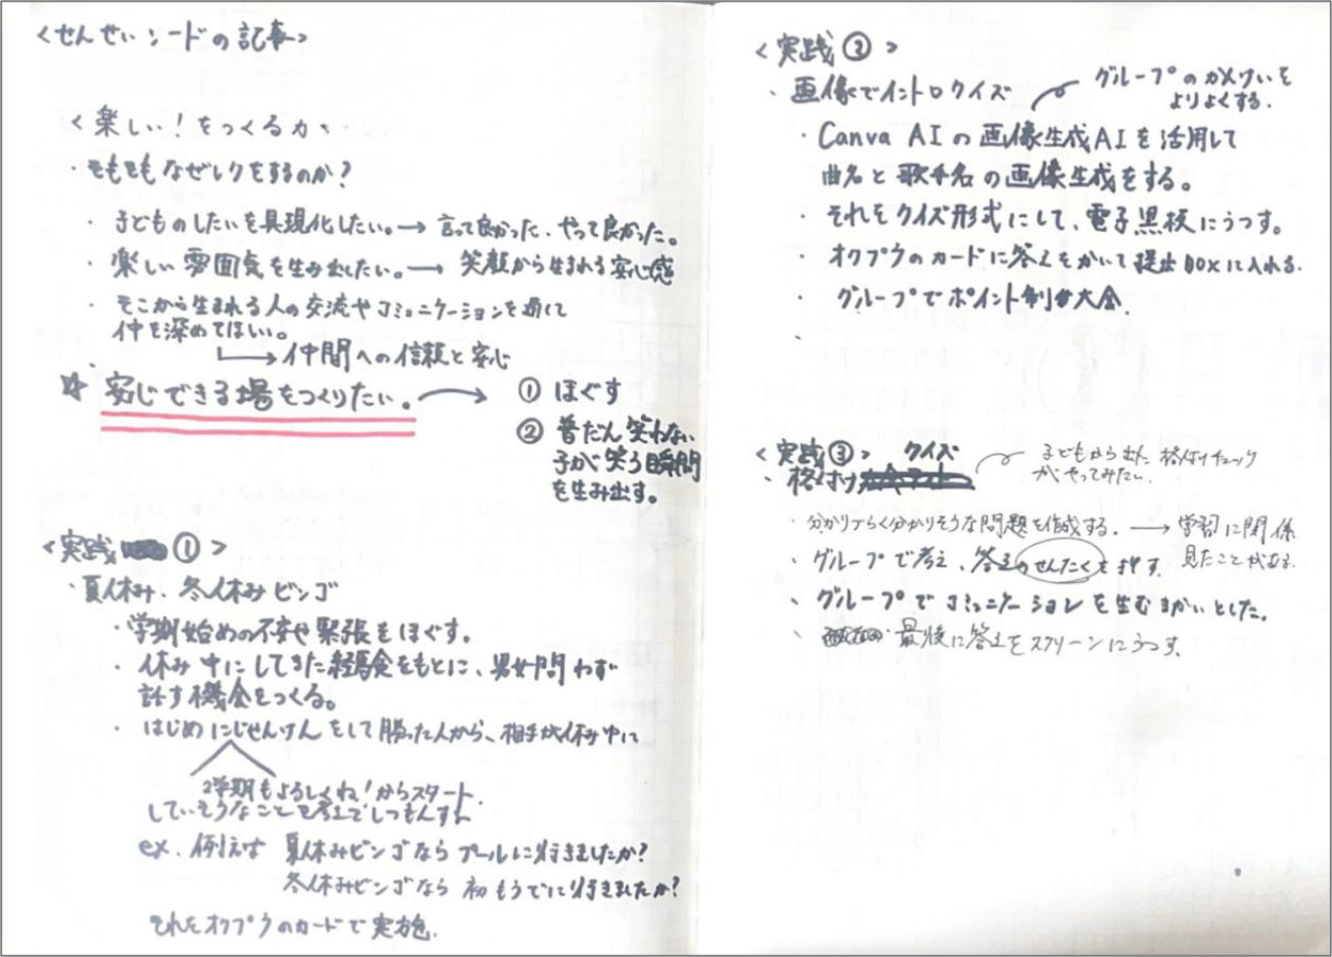 <せんせいソードの記事>
<楽しい!をつくるカ>
・そもそもなぜレクをするのか?
・子どものしたいを具現化したい。→ 言って良かった、やって良かった。
・楽しい雰囲気を生み出したい。→ 笑顔から生まれる安心感
・そこから生まれる人の交流やコミュニケーションを通して
仲を深めてほしい。
→仲間への信頼と安心
☆ 安心できる場をつくりたい。→ ① ほぐす
② 普だん笑わない
子が笑う瞬間
を生み出す。
<実践①>
・夏休み、冬休みビンゴ
・学期始めの不安や緊張をほぐす。
・休み中にしてきた経験をもとに、男女問わず
話す機会をつくる。
・はじめにじゃんけんをして勝った人から、相手が休み中に
2学期もよろしくね!からスタート.
していそうなことを考えてしつもんする
ex. 例えば 夏休みビンゴなら プールに行きましたか?
冬休みビンゴなら 初もうでに行きましたか?
それをオクプラのカードで実施.
<実践②>
・画像でイントロクイズ
グループのかんけいを
よりよくする.
・Canva AIの画像生成AIを活用して
曲名と歌手名の画像生成をする。
・それをクイズ形式にして、電子黒板にうつす。
・オクプラのカードに答えをかいて提出BOXに入れる.
・グループでポイント制の大会.
・
<実践③> クイズ
・格付け
子どもから出た格付けチェック
がやってみたい.
・分かりづらく分かりそうな問題を作成する. → 学習に関係
見たことがある.
・グループで考え、答えのせんたくを押す.
・グループでコミュニケーションを生むきかいとした。
・最後に答えをスクリーンにうつす.